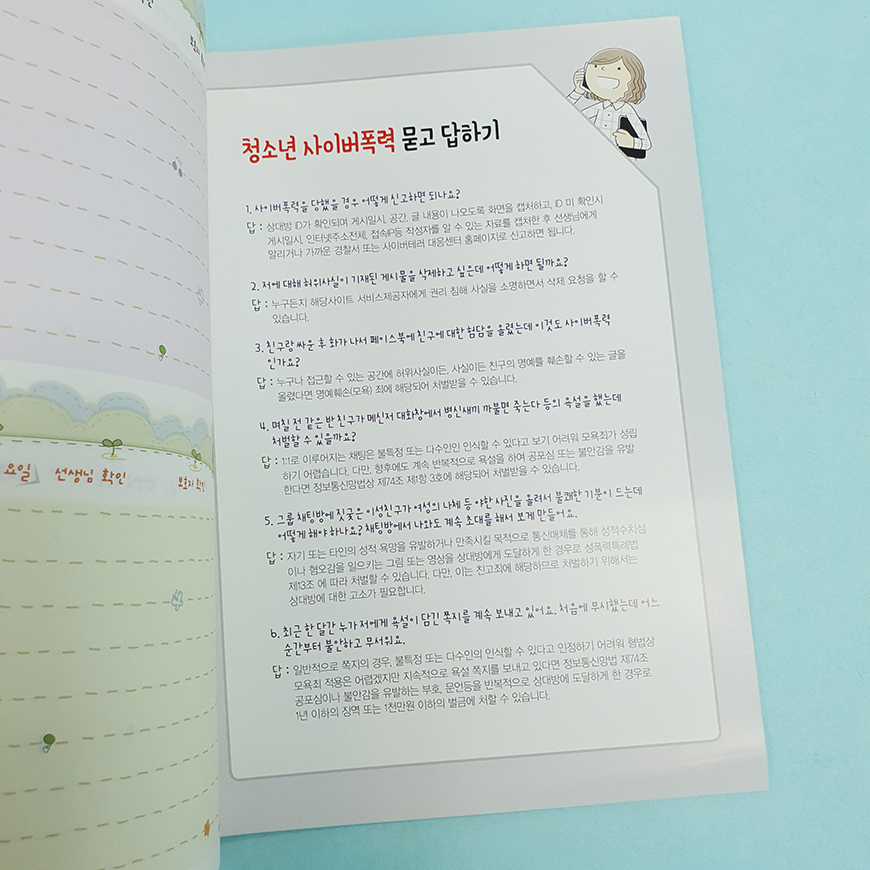 청소년 사이버폭력 묻고 답하기
1. 사이버폭력을 당했을 경우 어떻게 신고하면 되나요?
답 : 상대방 ID가 확인되며 게시일시, 공간, 글 내용이 나오도록 화면을 캡처하고, ID 미 확인시
게시일시, 인터넷주소전체, 접속IP등 작성자를 알 수 있는 자료를 캡처한 후 선생님에게
알리거나 가까운 경찰서 또는 사이버테러 대응센터 홈페이지로 신고하면 됩니다.
2. 저에 대해 허위사실이 기재된 게시물을 삭제하고 싶은데 어떻게 하면 될까요?
답 : 누구든지 해당사이트 서비스제공자에게 권리 침해 사실을 소명하면서 삭제 요청을 할 수
있습니다.
3. 친구랑 싸운 후 화가 나서 페이스북에 친구에 대한 험담을 올렸는데 이것도 사이버폭력
인가요?
답 : 누구나 접근할 수 있는 공간에 허위사실이든, 사실이든 친구의 명예를 훼손할 수 있는 글을
올렸다면 명예훼손(모욕) 죄에 해당되어 처벌받을 수 있습니다.
4. 며칠 전 같은 반 친구가 메신저 대화창에서 병신새끼 까불면 죽는다 등의 욕설을 했는데
처벌할 수 있을까요?
답 : 1:1로 이루어지는 채팅은 불특정 또는 다수인인 인식할 수 있다고 보기 어려워 모욕죄가 성립
하기 어렵습니다. 다만, 향후에도 계속 반복적으로 욕설을 하여 공포심 또는 불안감을 유발
한다면 정보통신망법상 제74조 제1항 3호에 해당되어 처벌받을 수 있습니다.
5. 그룹 채팅방에 짓궂은 이성친구가 여성의 나체 등 야한 사진을 올려서 불쾌한 기분이 드는데
어떻게 해야 하나요? 채팅방에서 나와도 계속 초대를 해서 보게 만들어요.
답 : 자기 또는 타인의 성적 욕망을 유발하거나 만족시킬 목적으로 통신매체를 통해 성적수치심
이나 혐오감을 일으키는 그림 또는 영상을 상대방에게 도달하게 한 경우로 성폭력특례법
제13조 에 따라 처벌할 수 있습니다. 다만, 이는 친고죄에 해당하므로 처벌하기 위해서는
상대방에 대한 고소가 필요합니다.
6. 최근 한 달간 누가 저에게 욕설이 담긴 쪽지를 계속 보내고 있어요. 처음에 무시했는데 어느
순간부터 불안하고 무서워요.
답 : 일반적으로 쪽지의 경우, 불특정 또는 다수인의 인식할 수 있다고 인정하기 어려워 형법상
모욕죄 적용은 어렵겠지만 지속적으로 욕설 쪽지를 보내고 있다면 정보통신망법 제74조
공포심이나 불안감을 유발하는 부호, 문언등을 반복적으로 상대방에 도달하게 한 경우로
1년 이하의 징역 또는 1천만원 이하의 벌금에 처할 수 있습니다.
요일 선생님 확인 보호자 확인